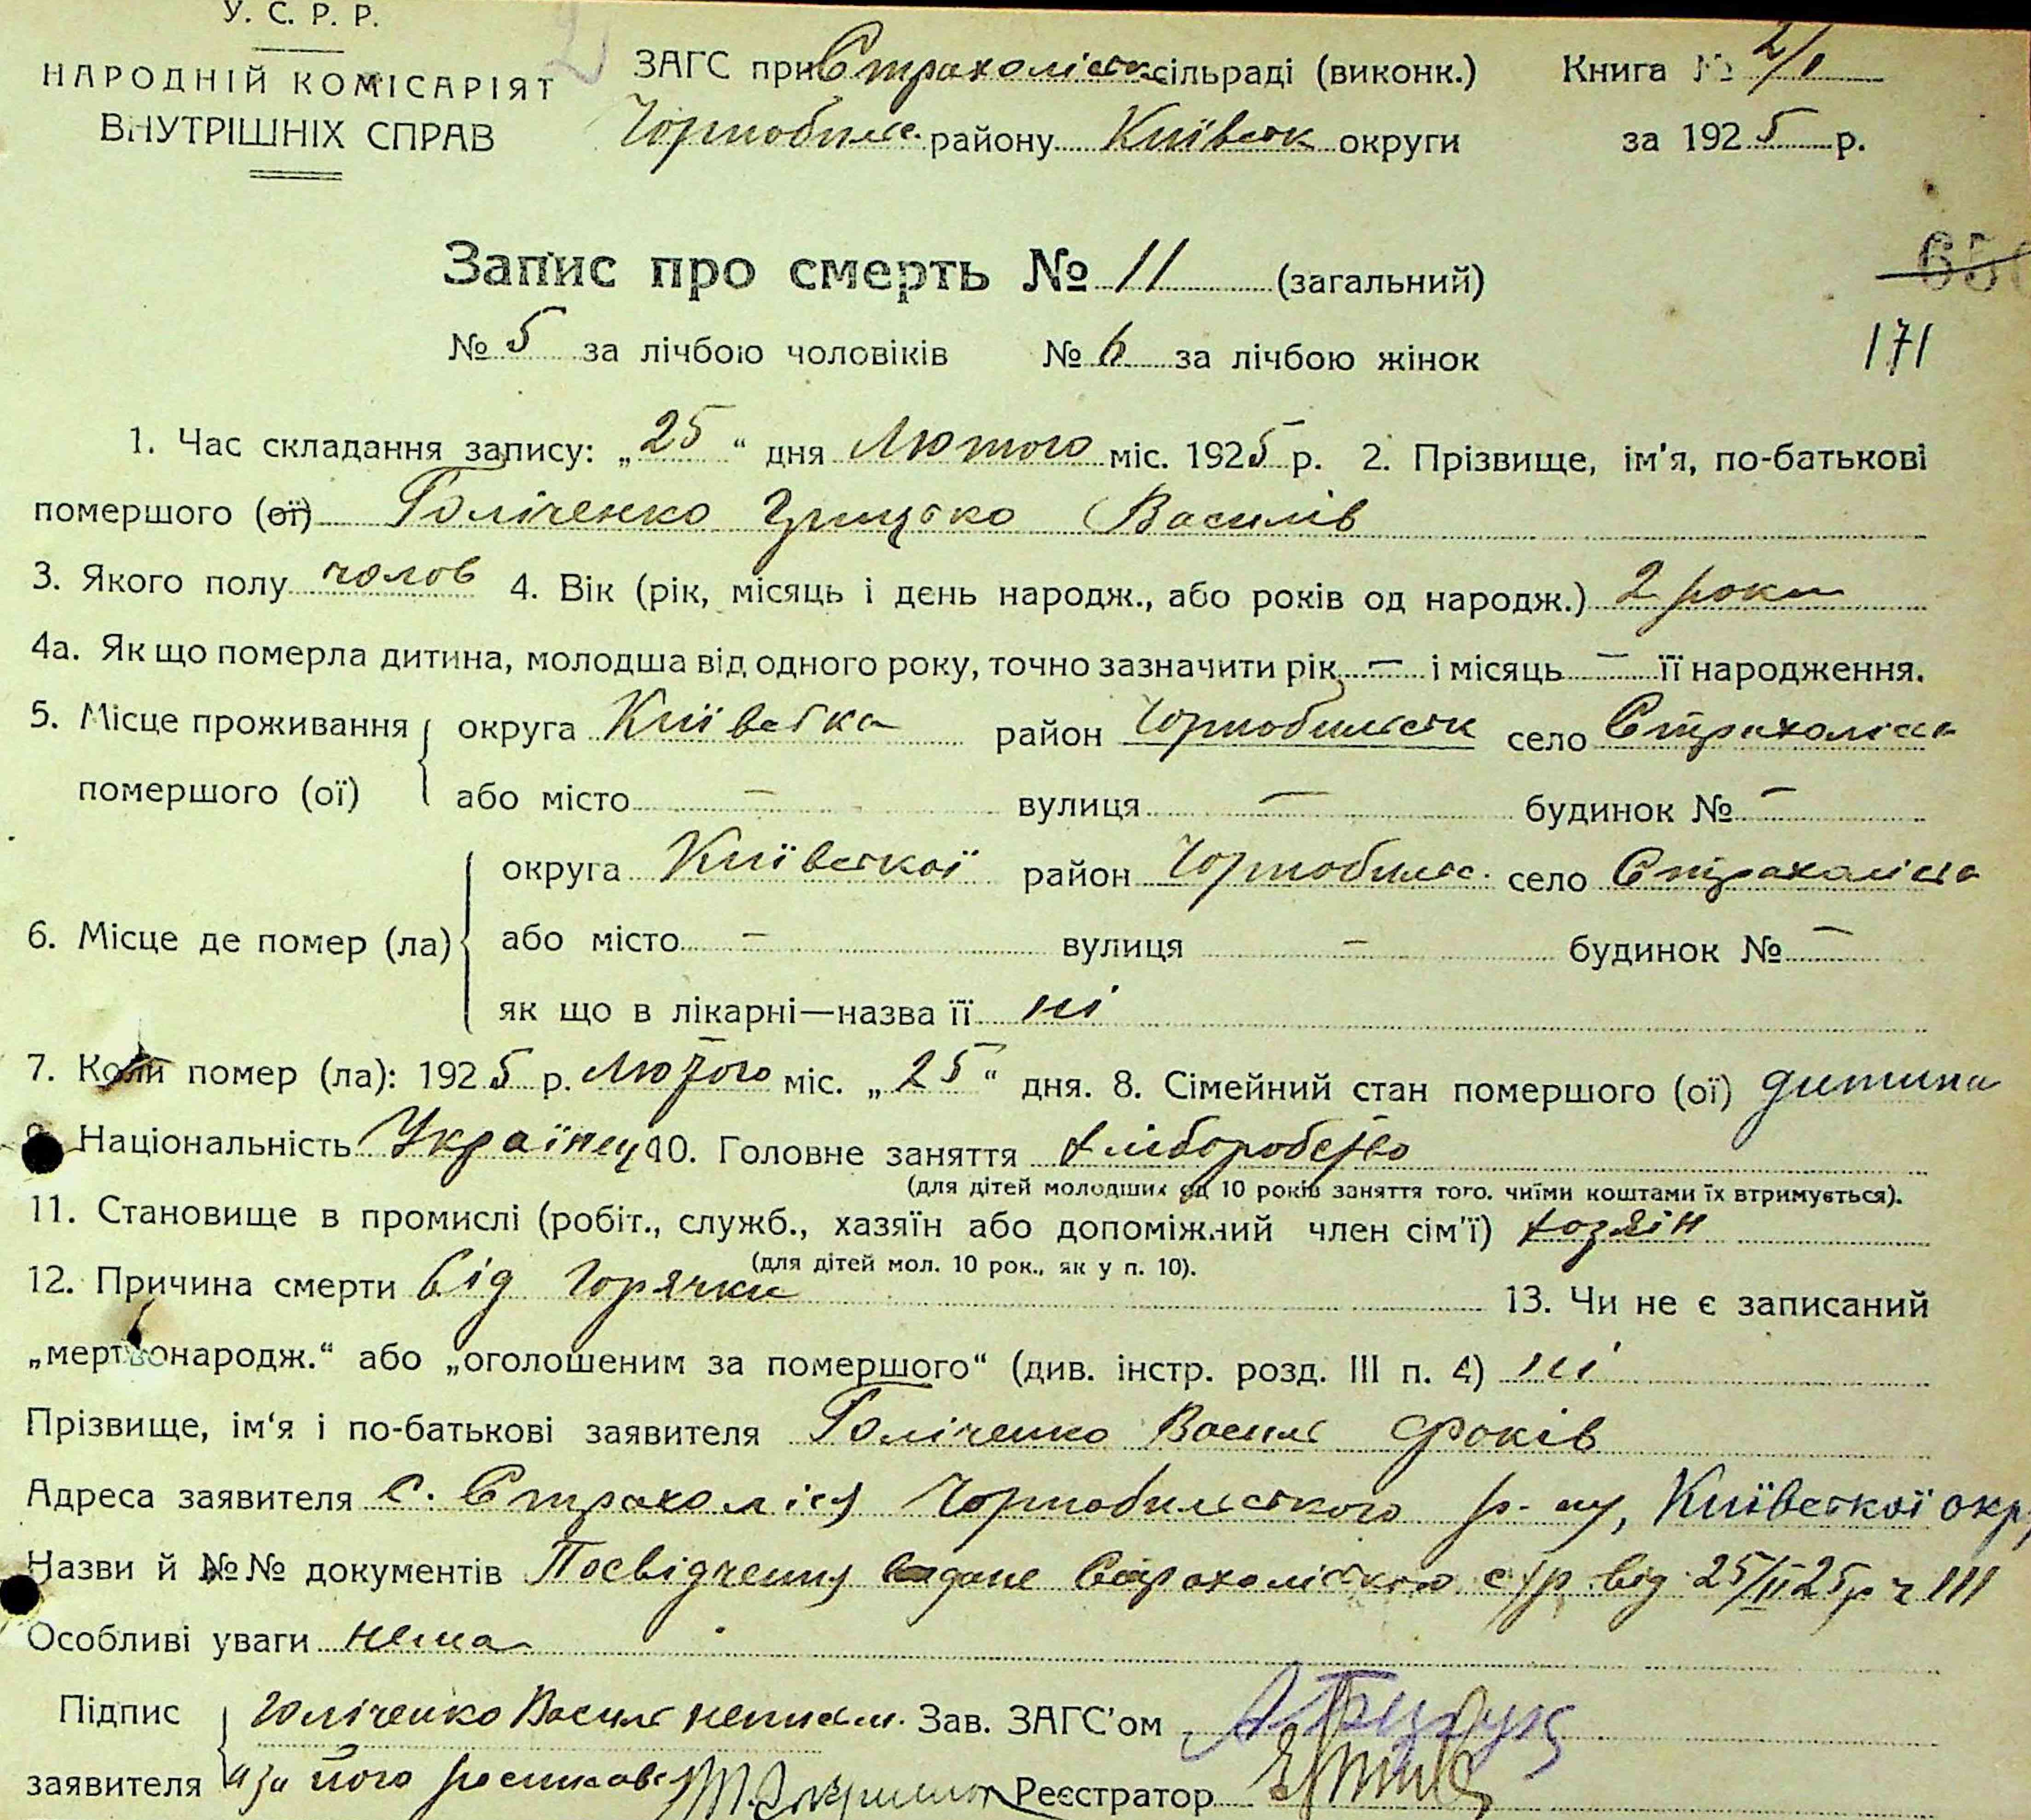 У. С. Р. Р.
НАРОДНІЙ КОМІСАРІЯТ
ВНУТРІШНІХ СПРАВ
ЗАГС при Страхоліськ сільраді (виконк.) Книга № 2/1
Чорнобильс. району Київськ округи за 1925 р.
Запис про смерть № 11 (загальний)
№ 5 за лічбою чоловіків № 6 за лічбою жінок
171
1. Час складання запису: „25“ дня Лютого міс. 1925 р. 2. Прізвище, ім'я, по-батькові
помершого (ої) Голіченко Грицько Василів
3. Якого полу чолов 4. Вік (рік, місяць і день народж., або років од народж.) 2 роки
4а. Як що померла дитина, молодша від одного року, точно зазначити рік — і місяць — її народження.
5. Місце проживання помершого (ої) округа Київська район Чорнобильськ село Страхолісся
або місто — вулиця — будинок № —
6. Місце де помер (ла) округа Київської район Чорнобильс. село Страхолісся
або місто — вулиця — будинок № —
як що в лікарні—назва її ні
7. Коли помер (ла): 1925 р. Лютого міс. „25“ дня. 8. Сімейний стан помершого (ої) дитина
9. Національність Українец 10. Головне заняття хліборобство
(для дітей молодших од 10 років заняття того. чиїми коштами їх втримується).
11. Становище в промислі (робіт., служб., хазяїн або допоміжний член сім'ї) хозяїн
(для дітей мол. 10 рок., як у п. 10).
12. Причина смерти від горячки 13. Чи не є записаний
„мертвонародж.“ або „оголошеним за помершого“ (див. інстр. розд. III п. 4) ні
Прізвище, ім'я і по-батькові заявителя Голіченко Василь Фроків
Адреса заявителя с. Страхоліся Чорнобильського р-ну, Київської окр.
Назви й №№ документів Посвідчення видане Страхоліською с/р від 25/II 25р ч 111
Особливі уваги нема
Підпис Голіченко Василь неписьм. Зав. ЗАГС'ом
заявителя а за його росписавсь Реєстратор